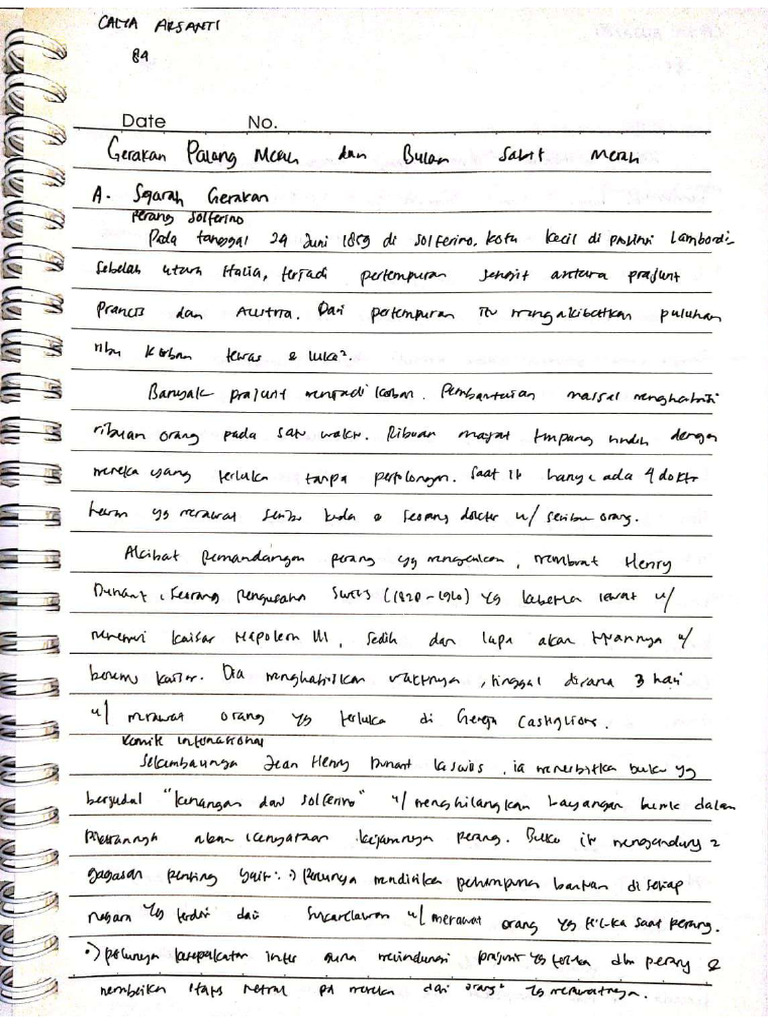 CALYA ARSANTI
89
Date No.
Gerakan Palang Merah dan Bulan Sabit Merah
A. Sejarah Gerakan
Perang Solferino
Pada tanggal 24 Juni 1859 di Solferino, kota kecil di provinsi Lambordi
Sebelah utara Italia, terjadi pertempuran sengit antara prajurit
Prancis dan Austria. Dari pertempuran itu mengakibatkan puluhan
ribu korban tewas & luka².
Banyak prajurit menjadi korban. Pembantaian massal menghabisi
ribuan orang pada satu waktu. Ribuan mayat tumpang tindih dengan
mereka yang terluka tanpa pertolongan. Saat itu hanya ada 4 doktr
hewan yg merawat seribu kuda & seorang dokter u/ seribu orang.
Akibat pemandangan perang yg mengerikan, membuat Henry
Dunant, seorang pengusaha Swiss (1828-1910) yg kebetulan lewat u/
menemui kaisar Napoleon III, sedih dan lupa akan tujuannya u/
bertemu kaisar. Dia menghabiskan waktunya, tinggal disana 3 hari
u/ merawat orang yg terluka di Gereja Castiglione.
Komite Internasional
Sekembalinya Jean Henry Dunant ke Swiss, ia menerbitka buku yg
berjudul "kenangan dari Solferino" u/ menghilangkan bayangan buruk dalam
pikirannya akan kenyataan kejamnya perang. Buku itu mengandung 2
gagasan penting yait: •) Perlunya mendirika perhimpunan bantuan di setiap
negara yg terdiri dari sukarelawan u/ merawat orang yg terluka saat perang.
•) perlunya kesepakatan inter guna melindungi prajurit yg terluka dlm perang &
memberikan status netral pd mereka dan orang² yg merawatnya.